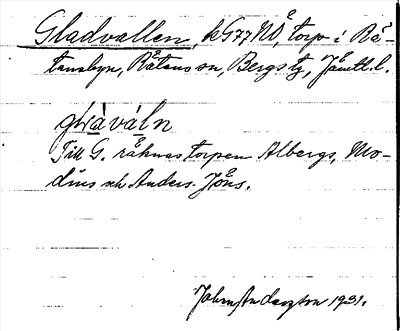 Gladvallen, kG77NO, torp i Rå-
tansbyn, Råtans sn, Bergs tg, Jämtl l.
glàvàln
Till G. räknas torpen Albergs, Mo-
dins och Anders-Jöns.
John Anderzton 1931.